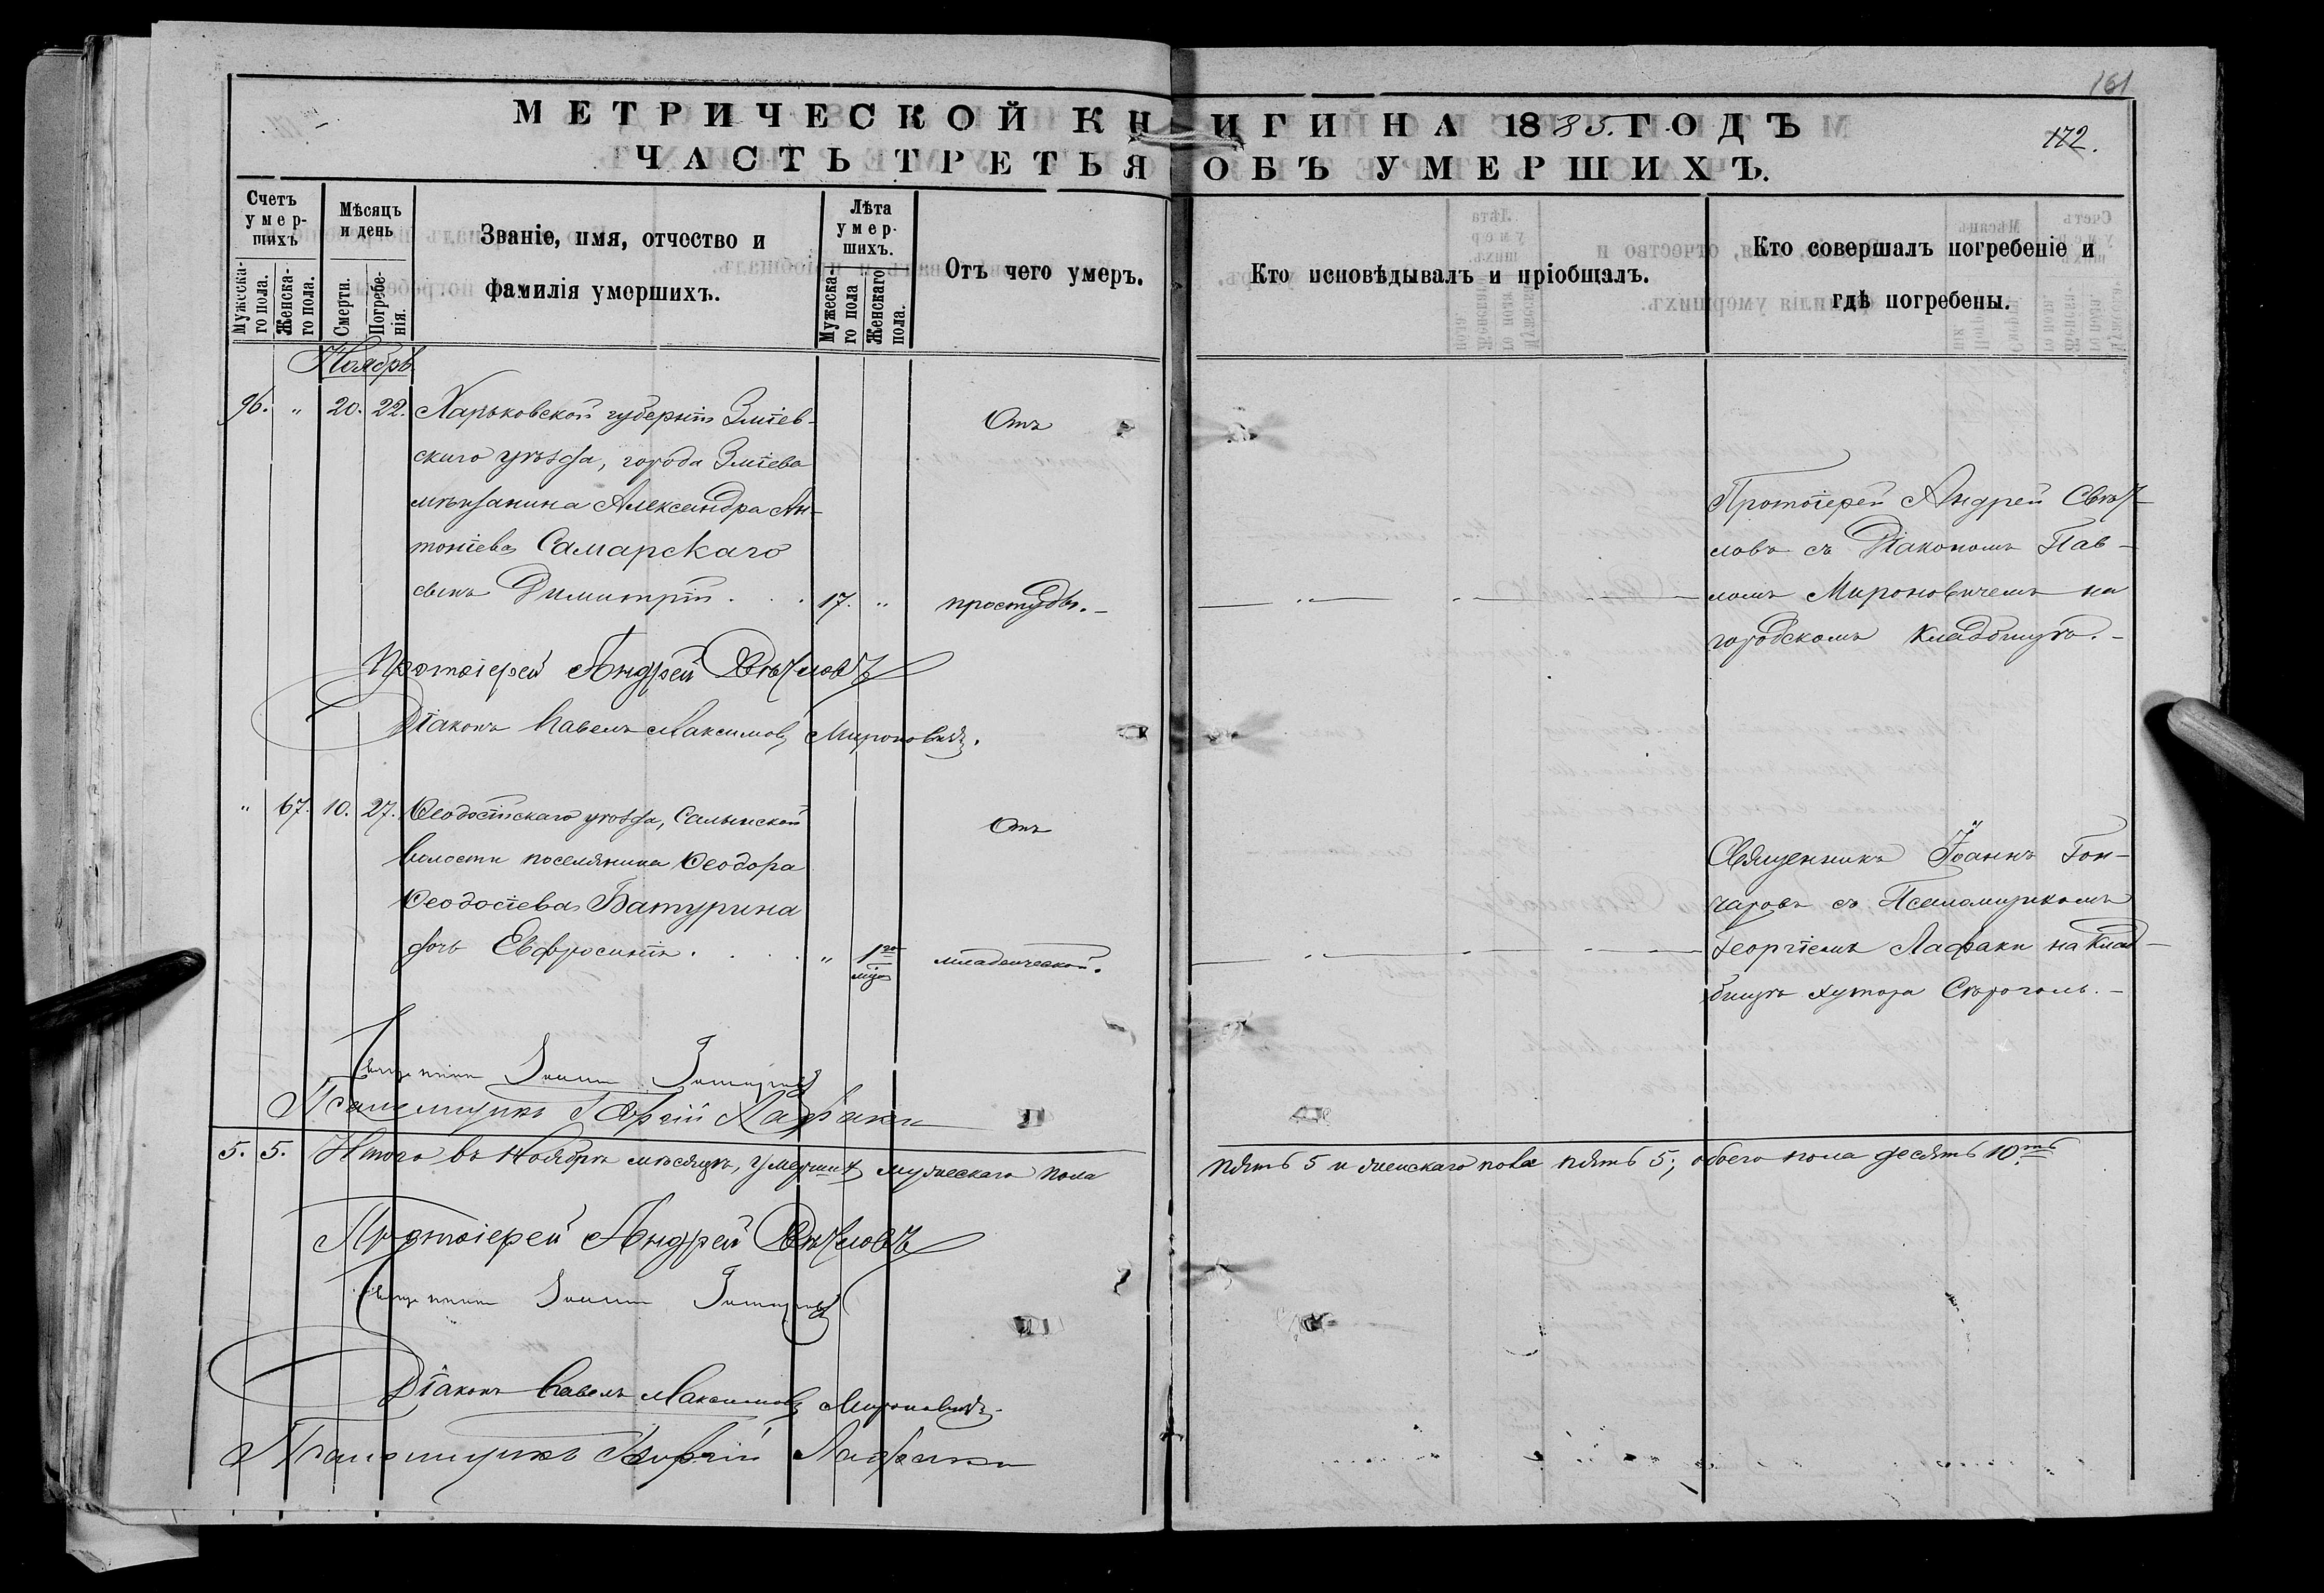 161
МЕТРИЧЕСКОЙ КНИГИ НА 1885. ГОДЪ
172.
ЧАСТЬ ТРЕТЬЯ ОБЪ УМЕРШИХЪ.
Счетъ умер-шихъ
Мужеска-го пола.
Женска-го пола.
Мѣсяцъ и день
Смерти.
Погребе-нія.
Званіе, имя, отчество и
фамилія умершихъ.
Лѣта умер-шихъ.
Мужеска-го пола
Женскаго пола.
Отъ чего умеръ.
Кто исповѣдывалъ и пріобщалъ.
Кто совершалъ погребеніе и
гдѣ погребены.
Ноябрь
96. " 20. 22. Харьковской губерніи Зміев-
скаго уѣзда, города Зміева
мѣщанина Александра Ан-
тоніева Самарскаго
сынъ Димитрій . . . 17. "
Отъ
простуды.-
Протоіерей Андрей Свѣт-
ловъ съ Діакономъ Пав-
ломъ Мироновичемъ на
городскомъ кладбищѣ.-
Протоіерей Андрей Свѣтловъ
Діаконъ Павелъ Максимовъ Мироновичъ.
" 67. 10. 27. Ѳеодосійскаго уѣзда, Салынской
волости поселянина Ѳеодора
Ѳеодосіева Батурина
дочь Евфросинія . . . . " 1го мѣс
Отъ
младенческой.
Священникъ Іоаннъ Гон-
чаровъ съ Псаломщикомъ
Георгіемъ Лафаки на клад-
бищѣ хутора Сѣрогозь.-
Священникъ Іоаннъ Гончаровъ
Псаломщикъ Георгій Лафаки
5. 5. Итого въ Ноябрѣ мѣсяцѣ, умершихъ мужескаго пола пять 5 и женскаго пола пять 5; обоего пола десять 10ть
Протоіерей Андрей Свѣтловъ
Священникъ Іоаннъ Гончаровъ
Діаконъ Павелъ Максимовъ Мироновичъ.
Псаломщикъ Георгій Лафаки